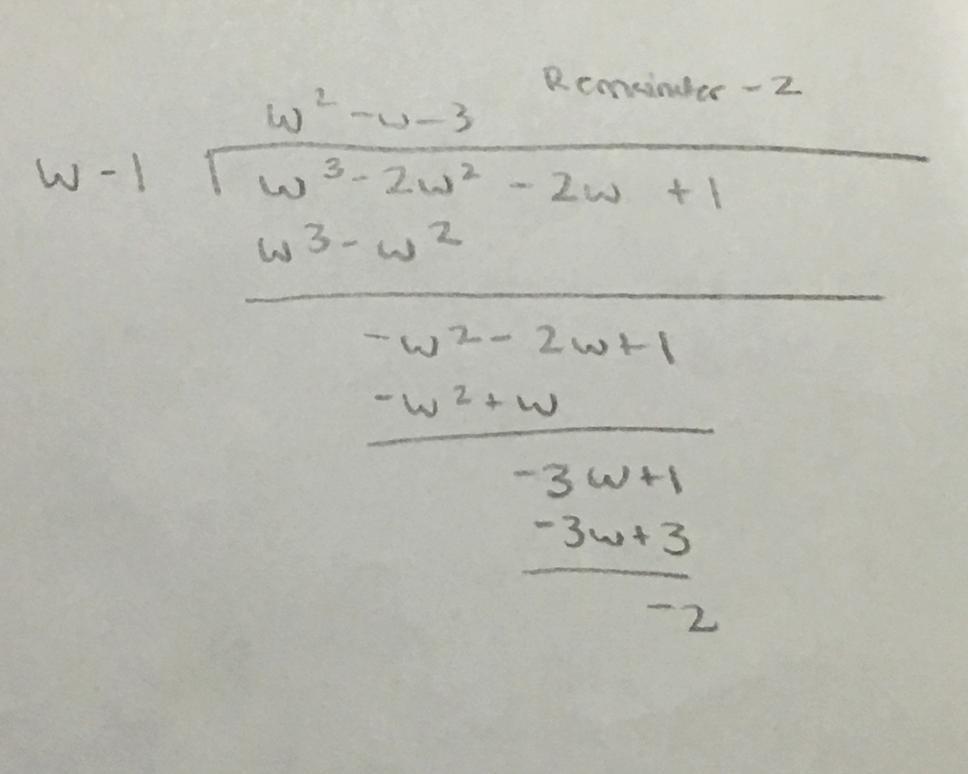 Remainder -2
w² -w-3
w-1 w³-2w² -2w +1
w³-w²
-w²-2w+1
-w²+w
-3w+1
-3w+3
-2